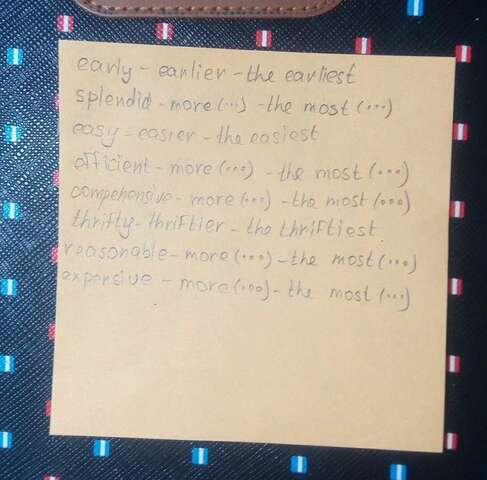 early - earlier - the earliest
splendid - more (...) - the most (...)
easy - easier - the easiest
efficient - more (...) - the most (...)
compehensive - more (...) - the most (...)
thrifty - thriftier - the thriftiest
reasonable - more (...) - the most (...)
expensive - more (...) - the most (...)